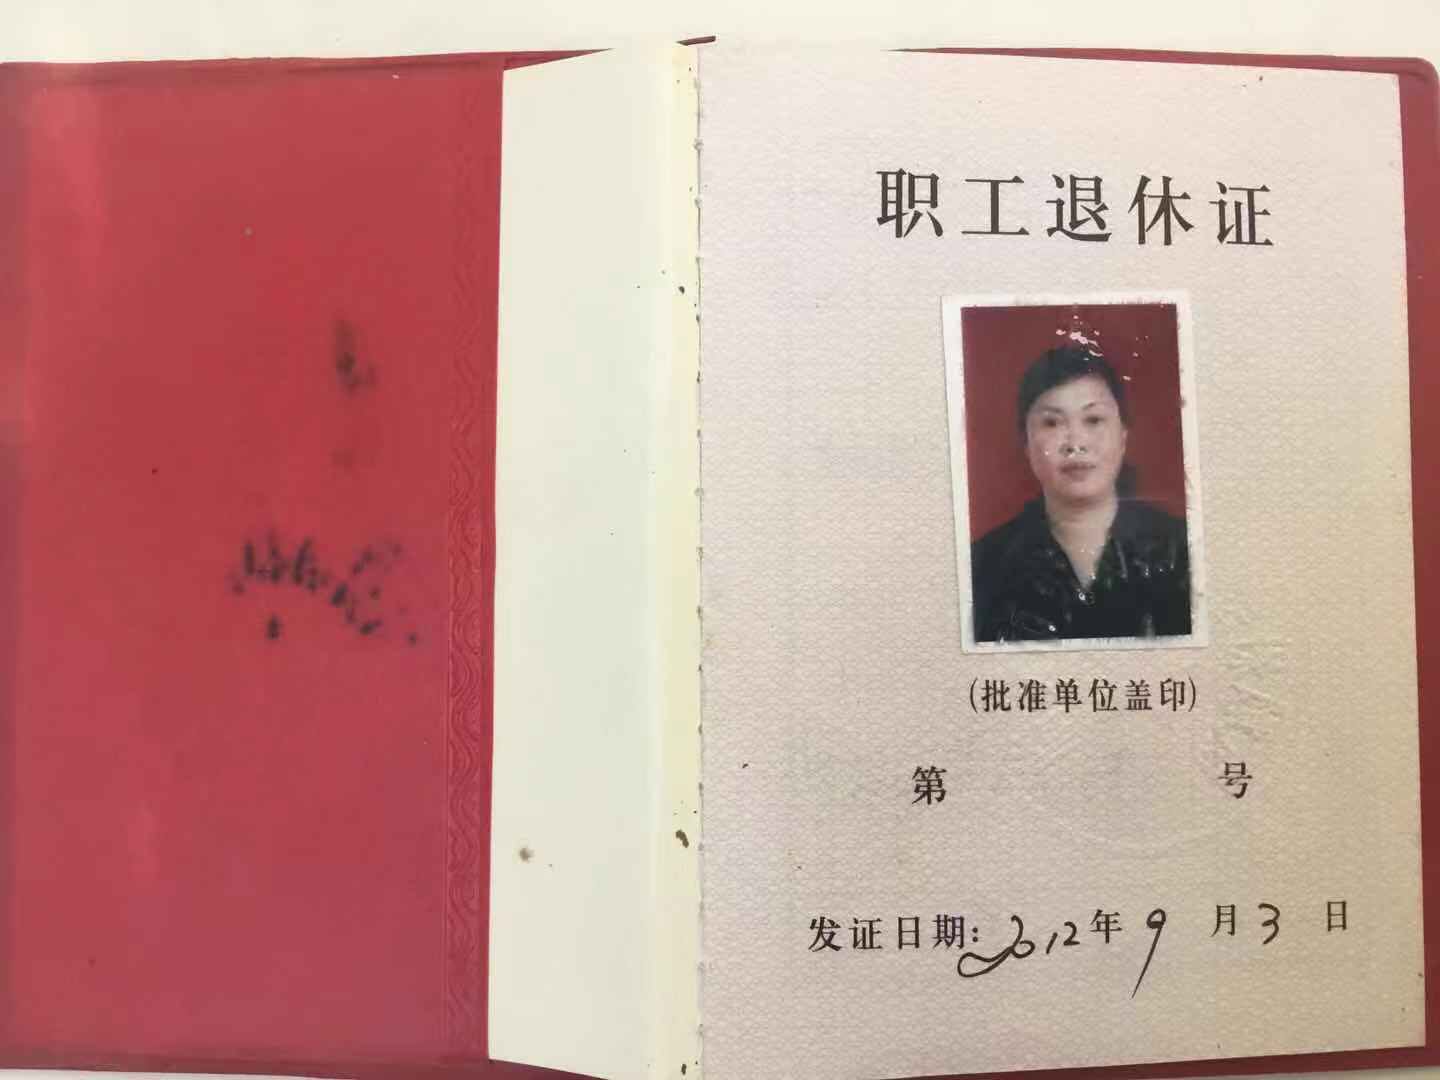 职工退休证
(批准单位盖印)
第 号
发证日期: 2012年9月3日